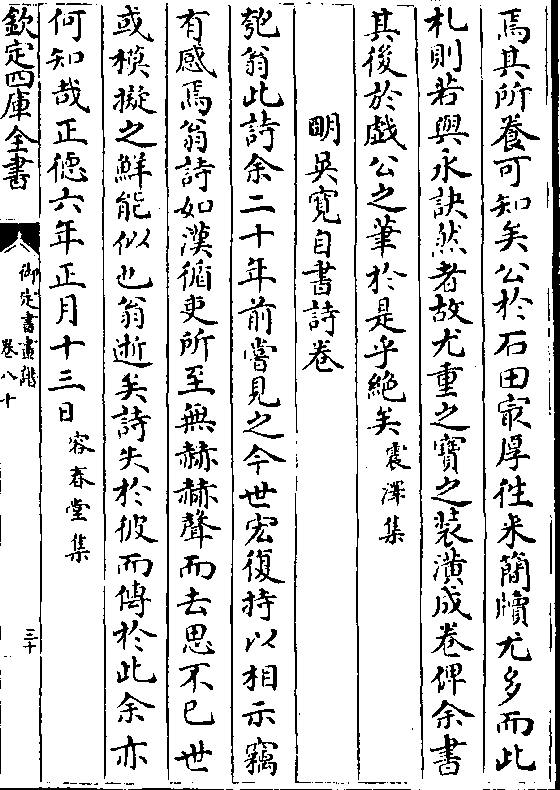 焉其所養可知矣公於石田㝡厚徃来簡牘尤多而此
札則若與永訣然者故尤重之寶之装潢成卷俾余書
其後於戯公之筆於是乎絶矣震澤集
明吳寛自書詩卷
匏翁此詩余二十年前嘗見之今世宏復持以相示竊
有感焉翁詩如漢循吏所至無赫赫聲而去思不已世
或模擬之鮮能似也翁逝矣詩失於彼而傳於此余亦
何知哉正徳六年正月十三日容春堂集
欽定四庫全書
御定書畫譜
卷八十
三十